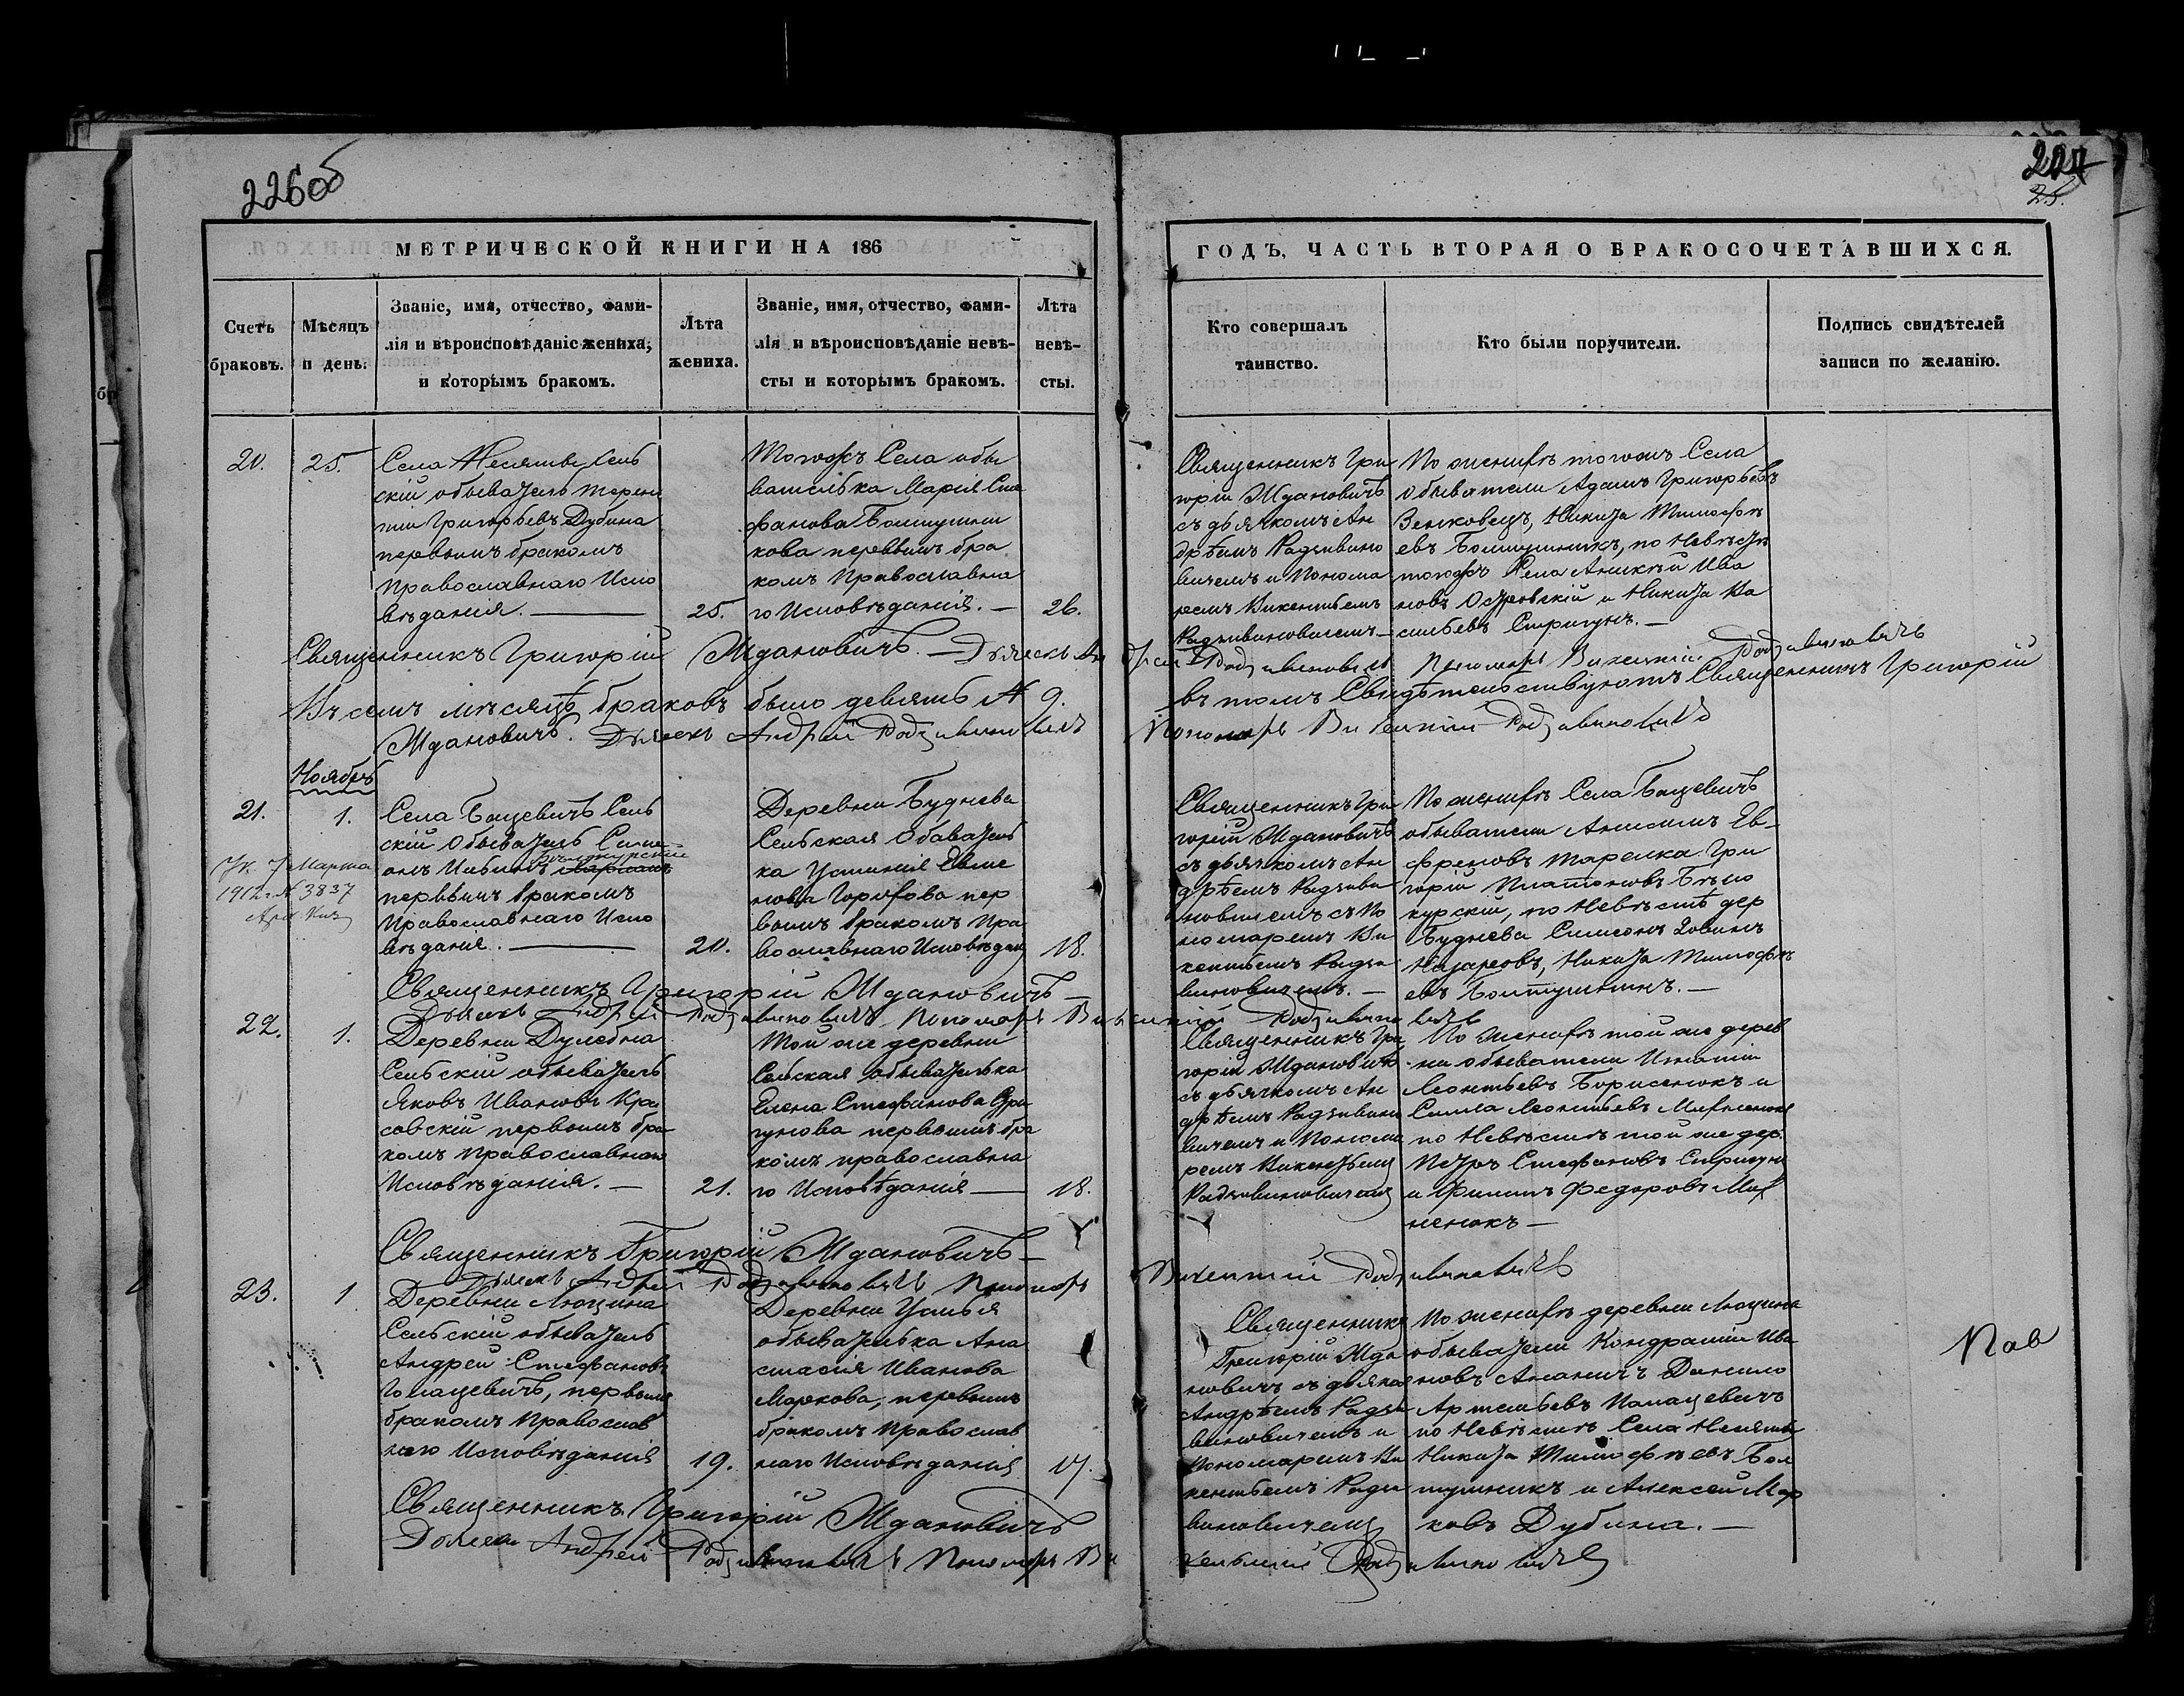 226об
227
25.
МЕТРИЧЕСКОЙ КНИГИ НА 186
ГОДЪ, ЧАСТЬ ВТОРАЯ О БРАКОСОЧЕТАВШИХСЯ.
Счетъ
браковъ.
Мѣсяцъ
и день.
Званіе, имя, отчество, фами-
лія и вѣроисповѣданіе жениха,
и которымъ бракомъ.
Лѣта
жениха.
Званіе, имя, отчество, фами-
лія и вѣроисповѣданіе невѣ-
сты и которымъ бракомъ.
Лѣта
невѣ-
сты.
Кто совершалъ
таинство.
Кто были поручители.
Подпись свидѣтелей
записи по желанію.
20.
25.
Села Несяты Сель
скій обыватель Терен
тій Григорьевъ Дубина
первымъ бракомъ
православнаго Испо
вѣданія. —
25.
Тогожъ Села обы
вателька Марія Сте
фанова Болтушни
кова первымъ бра
комъ Православна
го Исповѣданія. —
26.
Священникъ Гри
горій Ждановичъ
съ дьячкомъ Ан
дрѣемъ Радзивино
вичемъ и Понома
ремъ Викентьемъ
Радзивиновичемъ —
По женихѣ тогожъ Села
обыватели Адамъ Григорьевъ
Зенковецъ, Никита Тимофѣ
евъ Болтушникъ, по Невѣстѣ
тогожъ Села Аникѣй Ива
новъ Островскій и Никита Ва
сильевъ Стригунъ. —
Священникъ Григорій Ждановичъ. — Дьячекъ Андрей Радзивиновичъ Пономарь Викентій Радзивиновичъ
Въ семъ мѣсяцѣ браковъ было девять № 9. въ томъ Свидѣтельствуютъ Священникъ Григорій
Ждановичъ. Дьячекъ Андрей Радзивиновичъ Пономарь Викентій Радзивиновичъ
Ноябрь
21.
1.
Ук. 7 Марта
1912 г. № 3837
Села Бацевичъ Сель
скій Обыватель Симе
онъ
первымъ бракомъ
Православнаго Испо
вѣданія. —
20.
Деревни Буднева
Сельская Обыватель
ка Устинія Евме
нова пер
вымъ бракомъ Пра
вославнаго Исповѣдан
18.
Священникъ Гри
горій Ждановичъ
съ дьячкомъ Ан
дрѣемъ Радзиви
новичемъ съ По
номаремъ Ви
кентьемъ Радзи
виновичемъ. —
По женихѣ Села Бацевичъ
обыватели Анисимъ Ев-
фремовъ Тарелка Гри
горій Платоновъ Бѣло
курскій, по Невѣстѣ дер
Буднева Симеонъ
Назаровъ, Никита Тимофѣ
евъ Болтушникъ. —
Священникъ Григорій Ждановичъ —
Дьячекъ Андрей Радзивиновичъ Пономарь Викентій Радзивиновичъ
22.
1.
Деревни Дулебна
Сельскій обыватель
Яковъ Ивановъ Кра
совскій первымъ бра
комъ православнаго
Исповѣданія. —
21.
Той же деревни
Сельская обывателька
Елена Стефанова Стри
гунова первымъ бра
комъ православна
го Исповѣданія —
18.
Священникъ Гри
горій Ждановичъ
съ дьячкомъ Ан
дрѣемъ Радзивино
вичемъ и Понома
ремъ Викентьемъ
Радзивиновичемъ
По женихѣ той же дерев
ни обыватели Игнатій
Леонтьевъ Борисенокъ и
Симма Леонтьевъ
по Невѣстѣ той же дер.
Петръ Стефановъ Стригунъ
и Филипъ Федоровъ Мих
ненокъ —
Священникъ Григорій Ждановичъ —
Дьячекъ Андрей Радзивиновичъ Пономарь Викентій Радзивиновичъ
23.
1
Деревни Люцина
Сельскій обыватель
Андрей Стефановъ
Попацевичъ, первымъ
бракомъ Православ
наго Исповѣданія
19.
Деревни Устья
обывателька Ана
стасія Иванова
Маркова, первымъ
бракомъ Православ
наго Исповѣданія
17.
Священникъ
Григорій Жда
новичъ съ дьячком
Андрѣемъ Радзи
виновичемъ и
Пономаремъ Ви
кентьемъ Радзи
виновичемъ
По женихѣ деревни Люцина
обыватели Кондратій Ива
новъ Ананичъ Данило
Артемьевъ Попацевичъ
по Невѣстѣ Села Несяты
Никита Тимофѣевъ Бол
тушникъ и Алексѣй Мар
ковъ Дубина. —
Пав
Священникъ Григорій Ждановичъ
Дьячекъ Андрей Радзивиновичъ Пономарь Викентій Радзивиновичъ